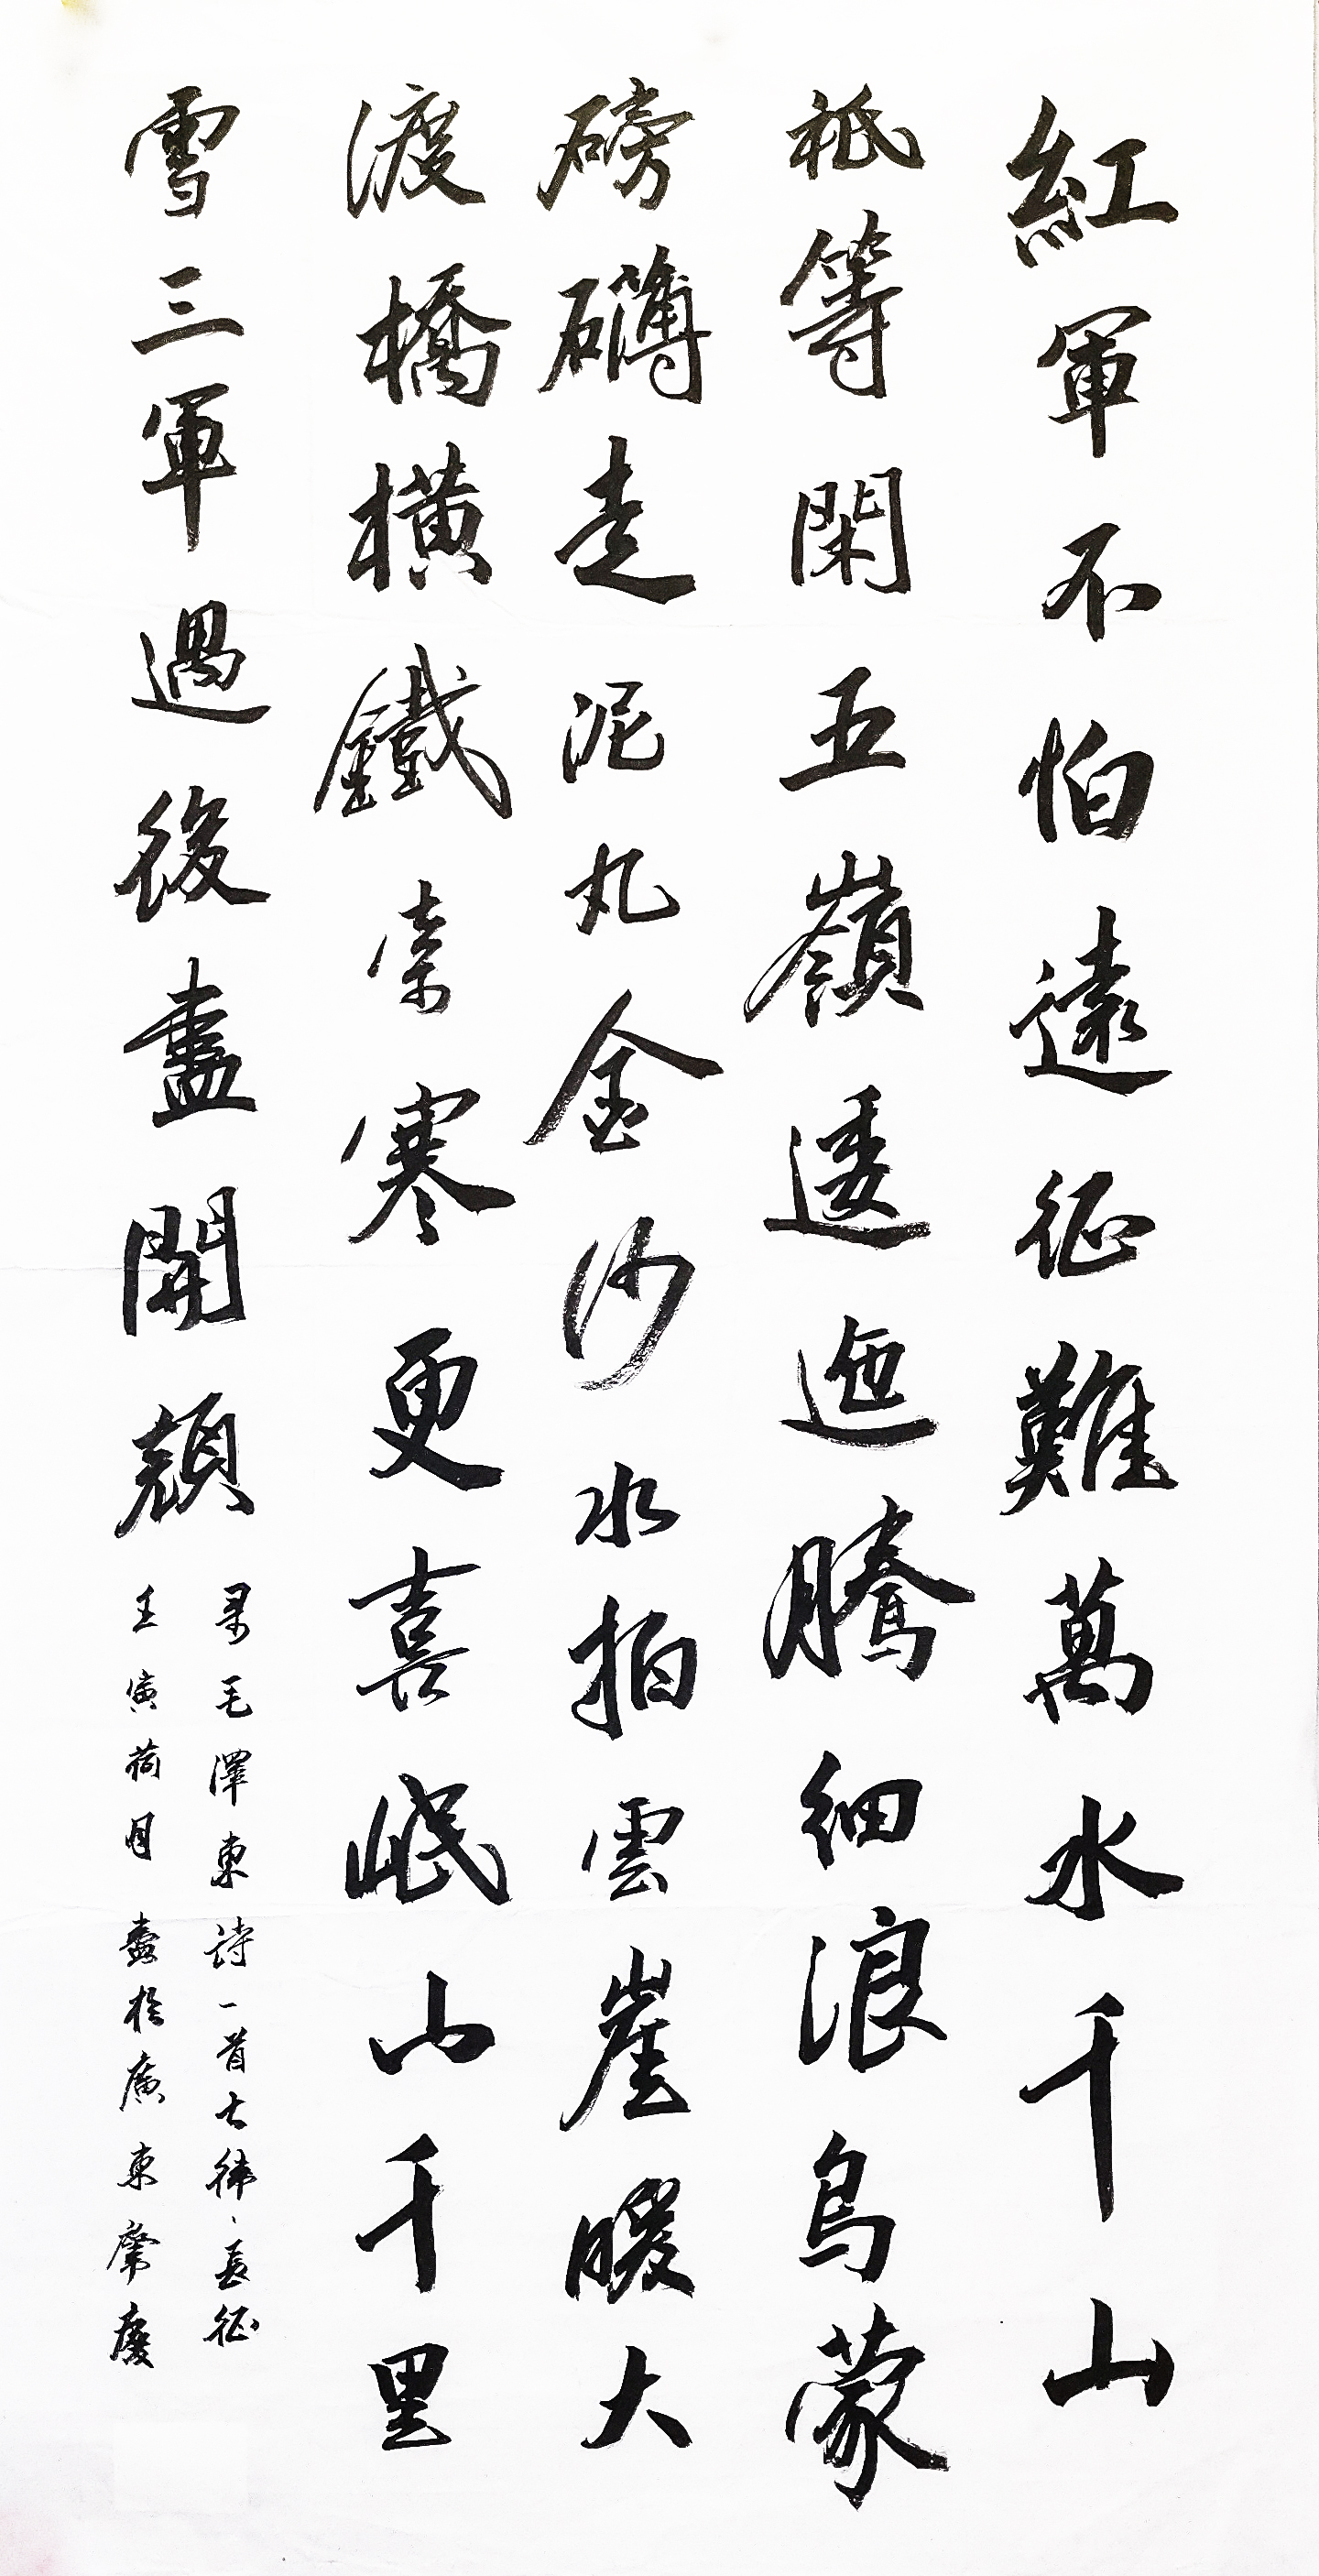 紅軍不怕遠征難萬水千山
祇等閑五嶺逶迤騰細浪烏蒙
磅礴走泥丸金沙水拍雲崖暖大
渡橋橫鐵索寒更喜岷山千里
雪三軍過後盡開顏
录毛澤東詩一首七律、長征
壬寅荷月 書於廣東肇慶